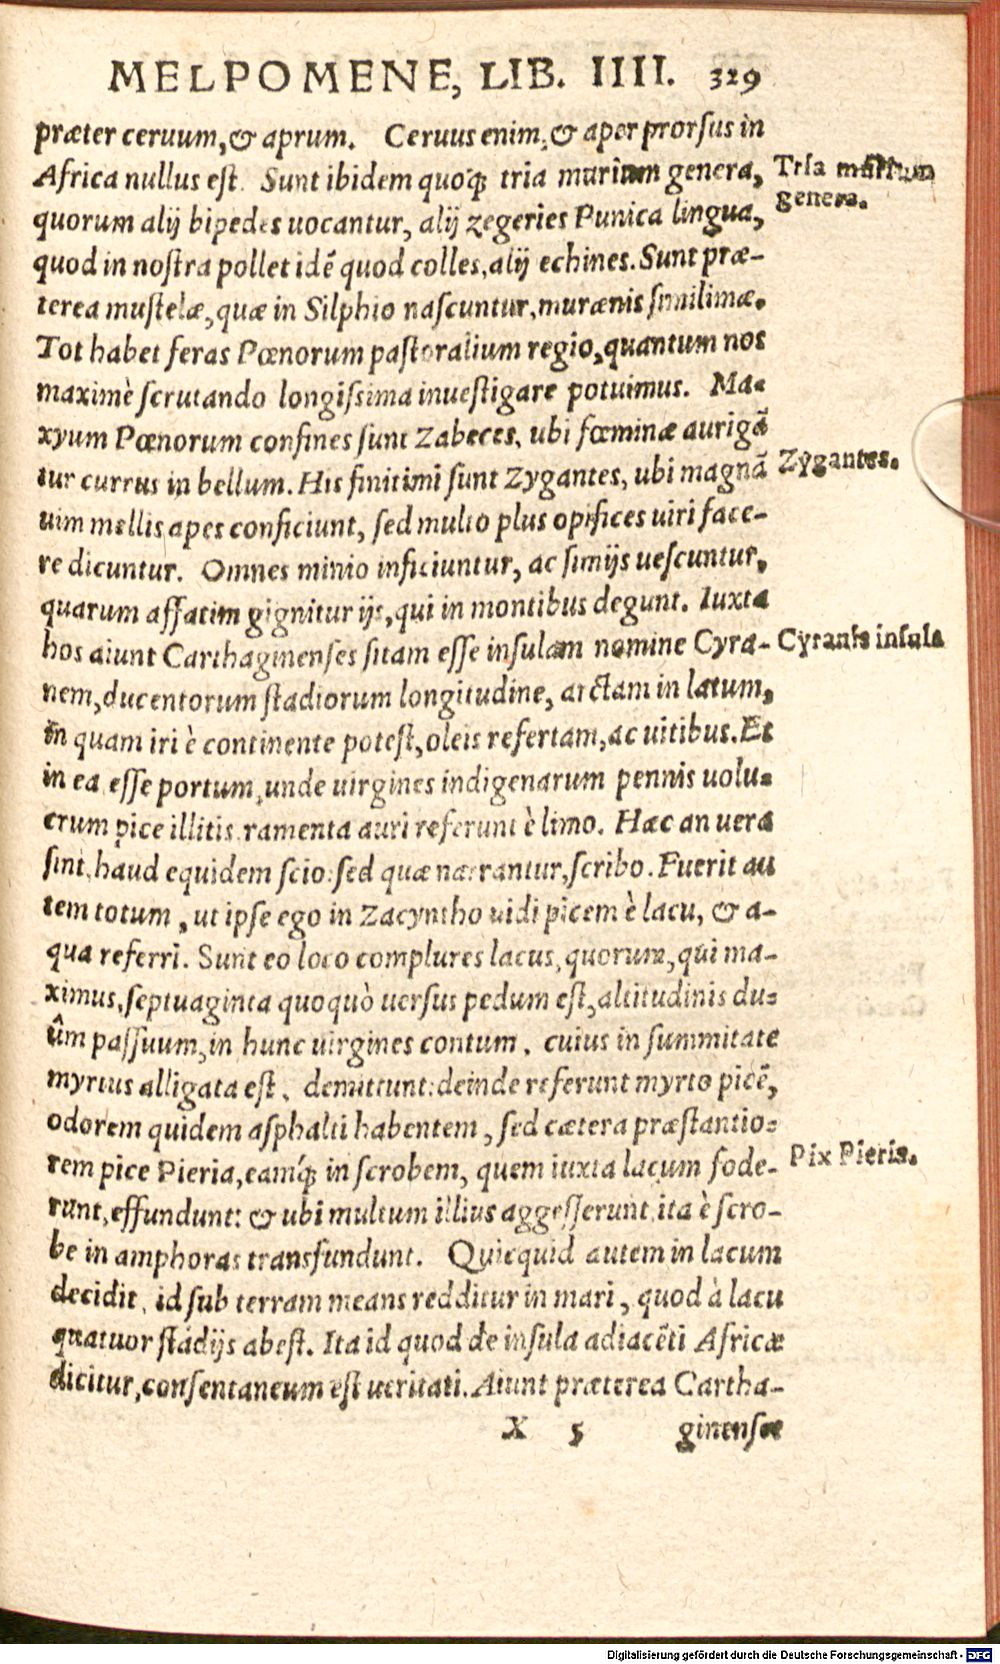 MELPOMENE, LIB. IIII. 329
præter ceruum, & aprum. Ceruus enim, & aper prorsus in
Africa nullus est. Sunt ibidem quoq́; tria murium genera,
Tria murium
genera.
quorum alij bipedes uocantur, alij zegeries Punica lingua,
quod in nostra pollet idē quod colles, alij echines. Sunt præ-
terea mustelæ, quæ in Silphio nascuntur, murænis simillimæ.
Tot habet feras Pœnorum pastoralium regio, quantum nos
maximè scrutando longissima inuestigare potuimus. Ma-
xyum Pœnorum confines sunt Zabeces, ubi fœminæ aurigā
tur currus in bellum. His finitimi sunt Zygantes, ubi magnā
Zygantes.
uim mellis apes conficiunt, sed multo plus opifices uiri face-
re dicuntur. Omnes minio inficiuntur, ac simijs uescuntur,
quarum affatim gignitur ijs, qui in montibus degunt. Iuxta
hos aiunt Carthaginenses sitam esse insulam nomine Cyra-
Cyranis insula
nem, ducentorum stadiorum longitudine, arctam in latum,
in quam iri è continente potest, oleis refertam, ac uitibus. Et
in ea esse portum, unde uirgines indigenarum pennis uolu-
crum pice illitis ramenta auri referunt è limo. Hæc an uera
sint, haud equidem scio: sed quæ narrantur, scribo. Fuerit au
tem totum, ut ipse ego in Zacyntho uidi picem è lacu, & a-
qua referri. Sunt eo loco complures lacus, quorum, qui ma-
ximus, septuaginta quoquò uersus pedum est, altitudinis du-
ûm passuum, in hunc uirgines contum, cuius in summitate
myrtus alligata est, demittunt: deinde referunt myrto picē,
odorem quidem asphalti habentem, sed cætera præstantio-
rem pice Pieria, eamq́; in scrobem, quem iuxta lacum fode-
Pix Pieria.
runt, effundunt: & ubi multum illius aggesserunt, ita è scro-
be in amphoras transfundunt. Quicquid autem in lacum
decidit, id sub terram means redditur in mari, quod à lacu
quatuor stadijs abest. Ita id quod de insula adiacēti Africæ
dicitur, consentaneum est ueritati. Aiunt præterea Cartha-
X 5 ginenses
Digitalisierung gefördert durch die Deutsche Forschungsgemeinschaft - DFG